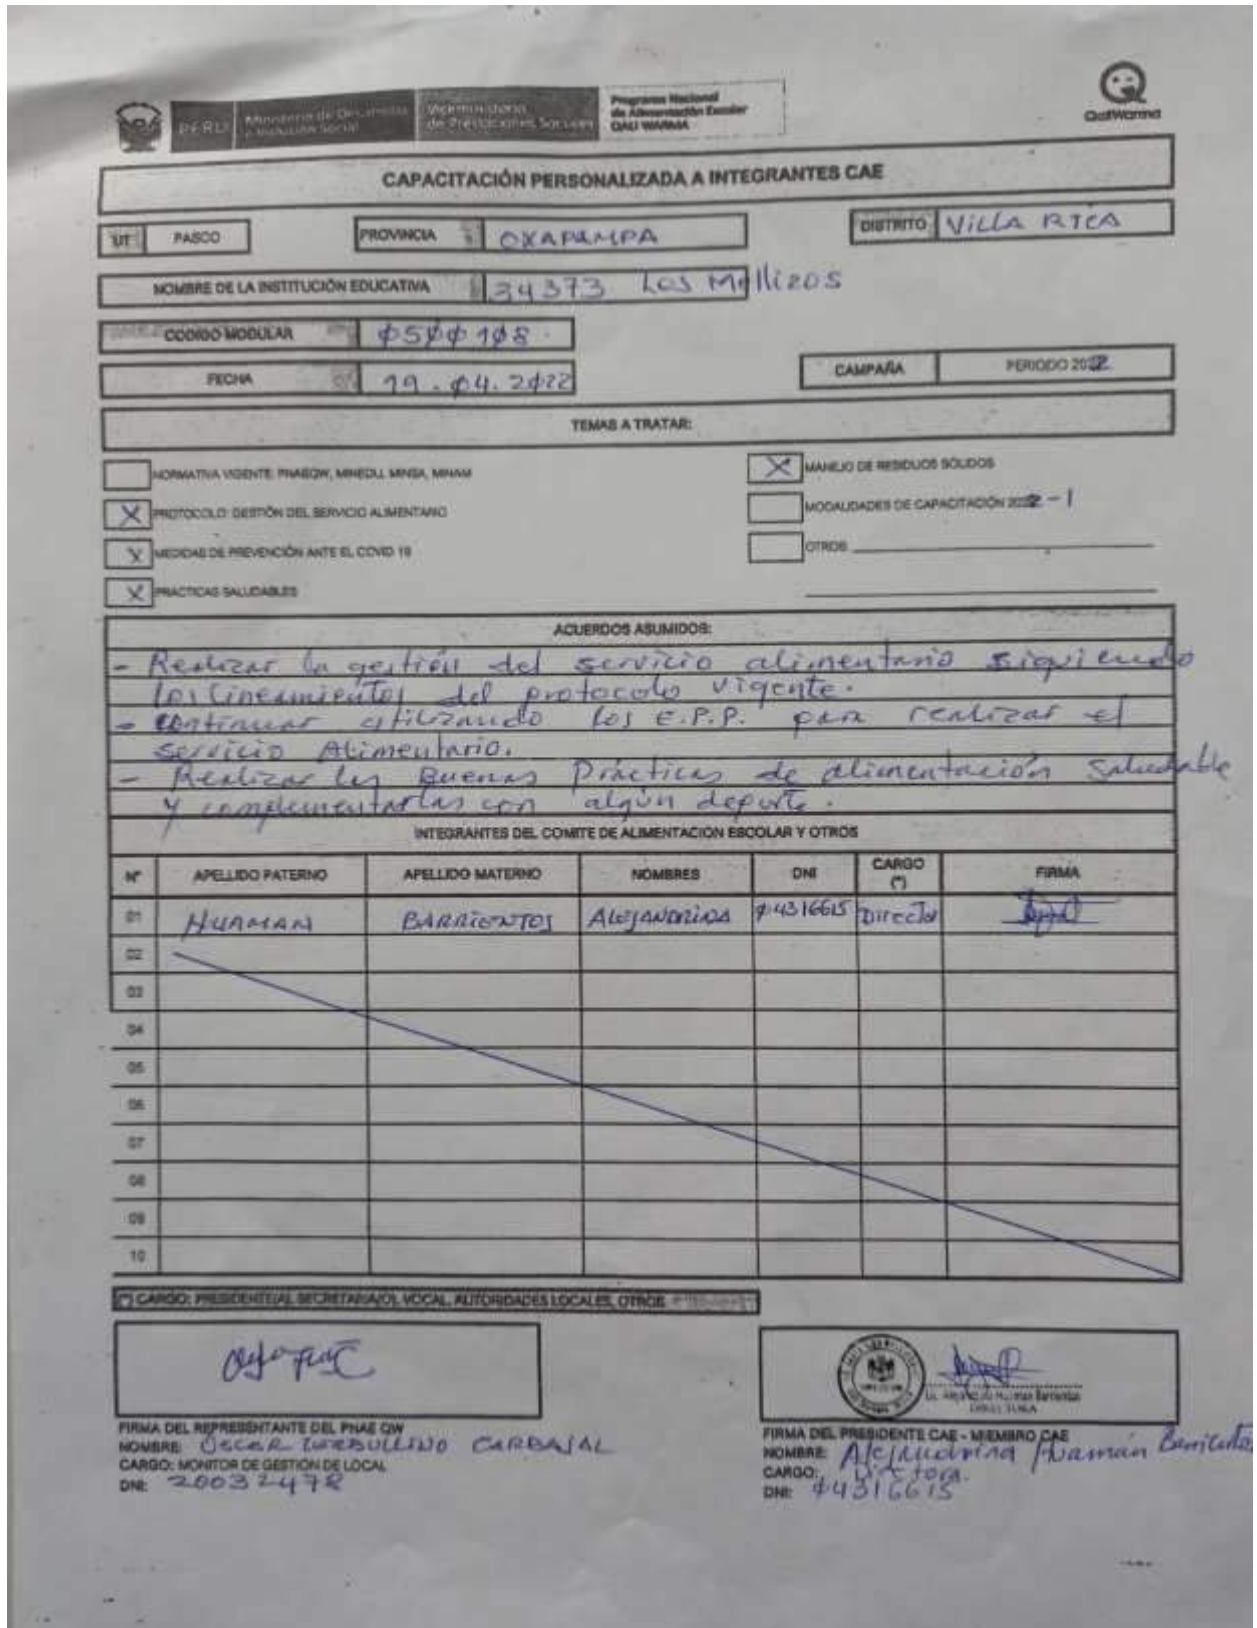 PERÚ Ministerio de Desarrollo e Inclusión Social Viceministerio de Prestaciones Sociales Programa Nacional de Alimentación Escolar QALI WARMA
QaliWarma
CAPACITACIÓN PERSONALIZADA A INTEGRANTES CAE
UT PASCO PROVINCIA OXAPAMPA DISTRITO VILLA RICA
NOMBRE DE LA INSTITUCIÓN EDUCATIVA 34373 Los Mellizos
CODIGO MODULAR 0500108
FECHA 19.04.2022 CAMPAÑA PERIODO 2022
TEMAS A TRATAR:
NORMATIVA VIGENTE: PNAEQW, MINEDU, MINSA, MINAM X MANEJO DE RESIDUOS SÓLIDOS
X PROTOCOLO: GESTIÓN DEL SERVICIO ALIMENTARIO MODALIDADES DE CAPACITACIÓN 2022 - I
X MEDIDAS DE PREVENCIÓN ANTE EL COVID 19 OTROS
X PRACTICAS SALUDABLES
ACUERDOS ASUMIDOS:
- Realizar la gestión del servicio alimentario siguiendo
los lineamientos del protocolo vigente.
- continuar utilizando los E.P.P. para realizar el
servicio Alimentario.
- Realizar las Buenas Prácticas de alimentación saludable
y complementarlas con algún deporte.
INTEGRANTES DEL COMITE DE ALIMENTACION ESCOLAR Y OTROS
N° APELLIDO PATERNO APELLIDO MATERNO NOMBRES DNI CARGO (*) FIRMA
01 HUAMAN BARRIENTOS ALEJANDRINA 04316615 Director
02
03
04
05
06
07
08
09
10
(*) CARGO: PRESIDENTE(A), SECRETARIA(O), VOCAL, AUTORIDADES LOCALES, OTROS
Lic. Alejandrina Huaman Barrientos
DIRECTORA
FIRMA DEL REPRESENTANTE DEL PNAE QW
NOMBRE: OSCAR CARBAJAL
CARGO: MONITOR DE GESTION DE LOCAL
DNI: 20032478
FIRMA DEL PRESIDENTE CAE - MIEMBRO CAE
NOMBRE: Alejandrina Huamán Barrientos
CARGO: Directora.
DNI: 04316615